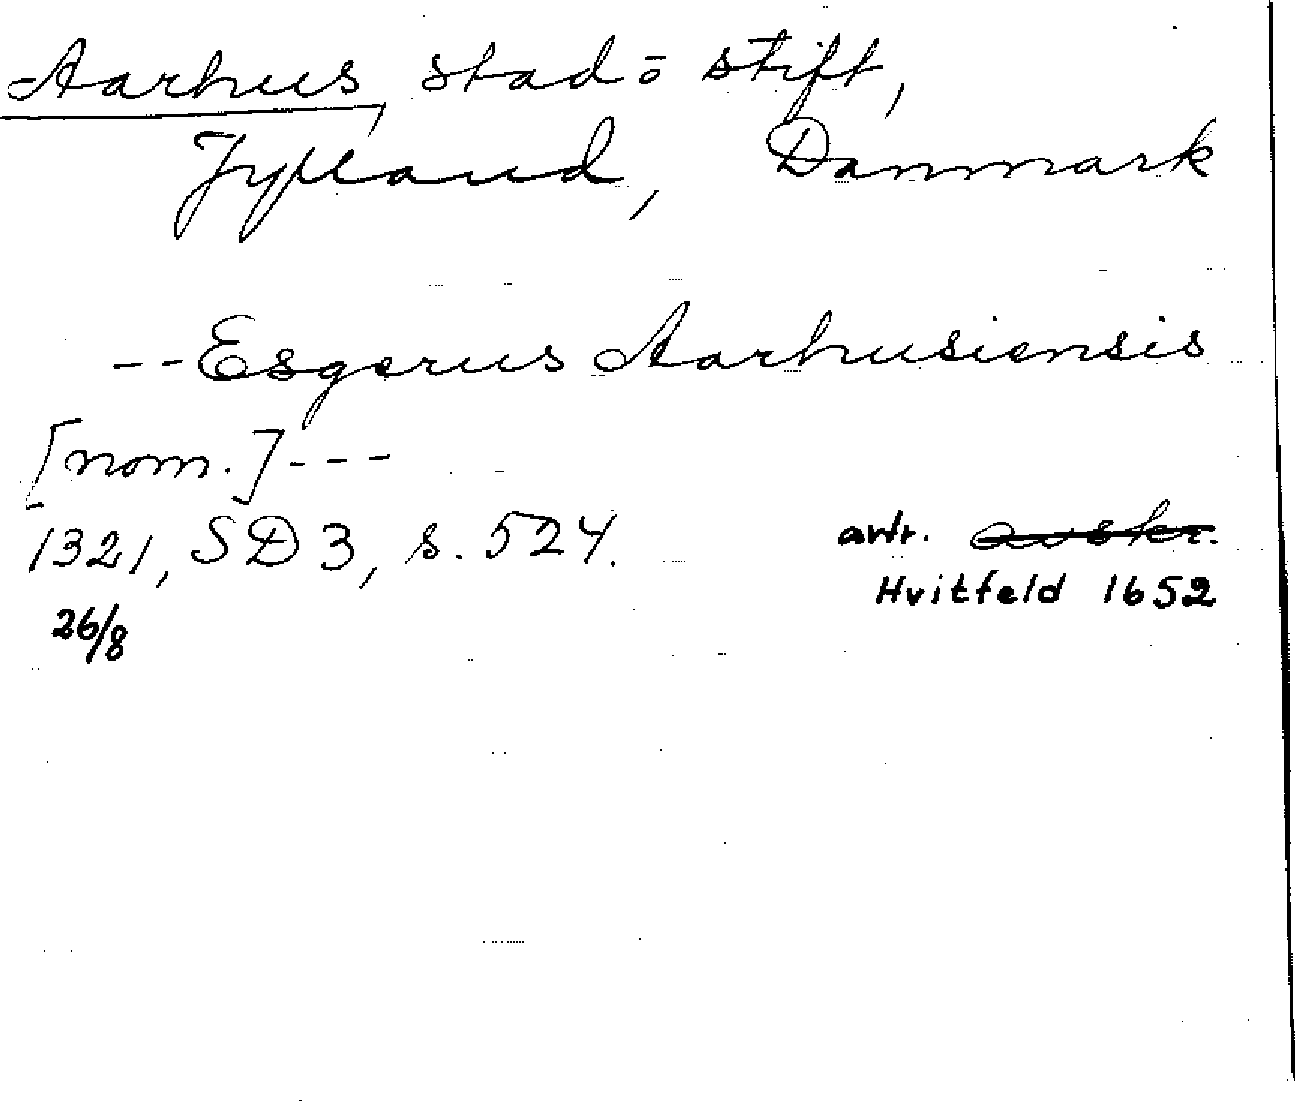 Aarhus, stad ō stift,
Jylland, Danmark
--Esgerus Aarhusiensis
[nom.]---
1321, SD 3, s. 524. avtr. avskr.
26/8 Hvitfeld 1652